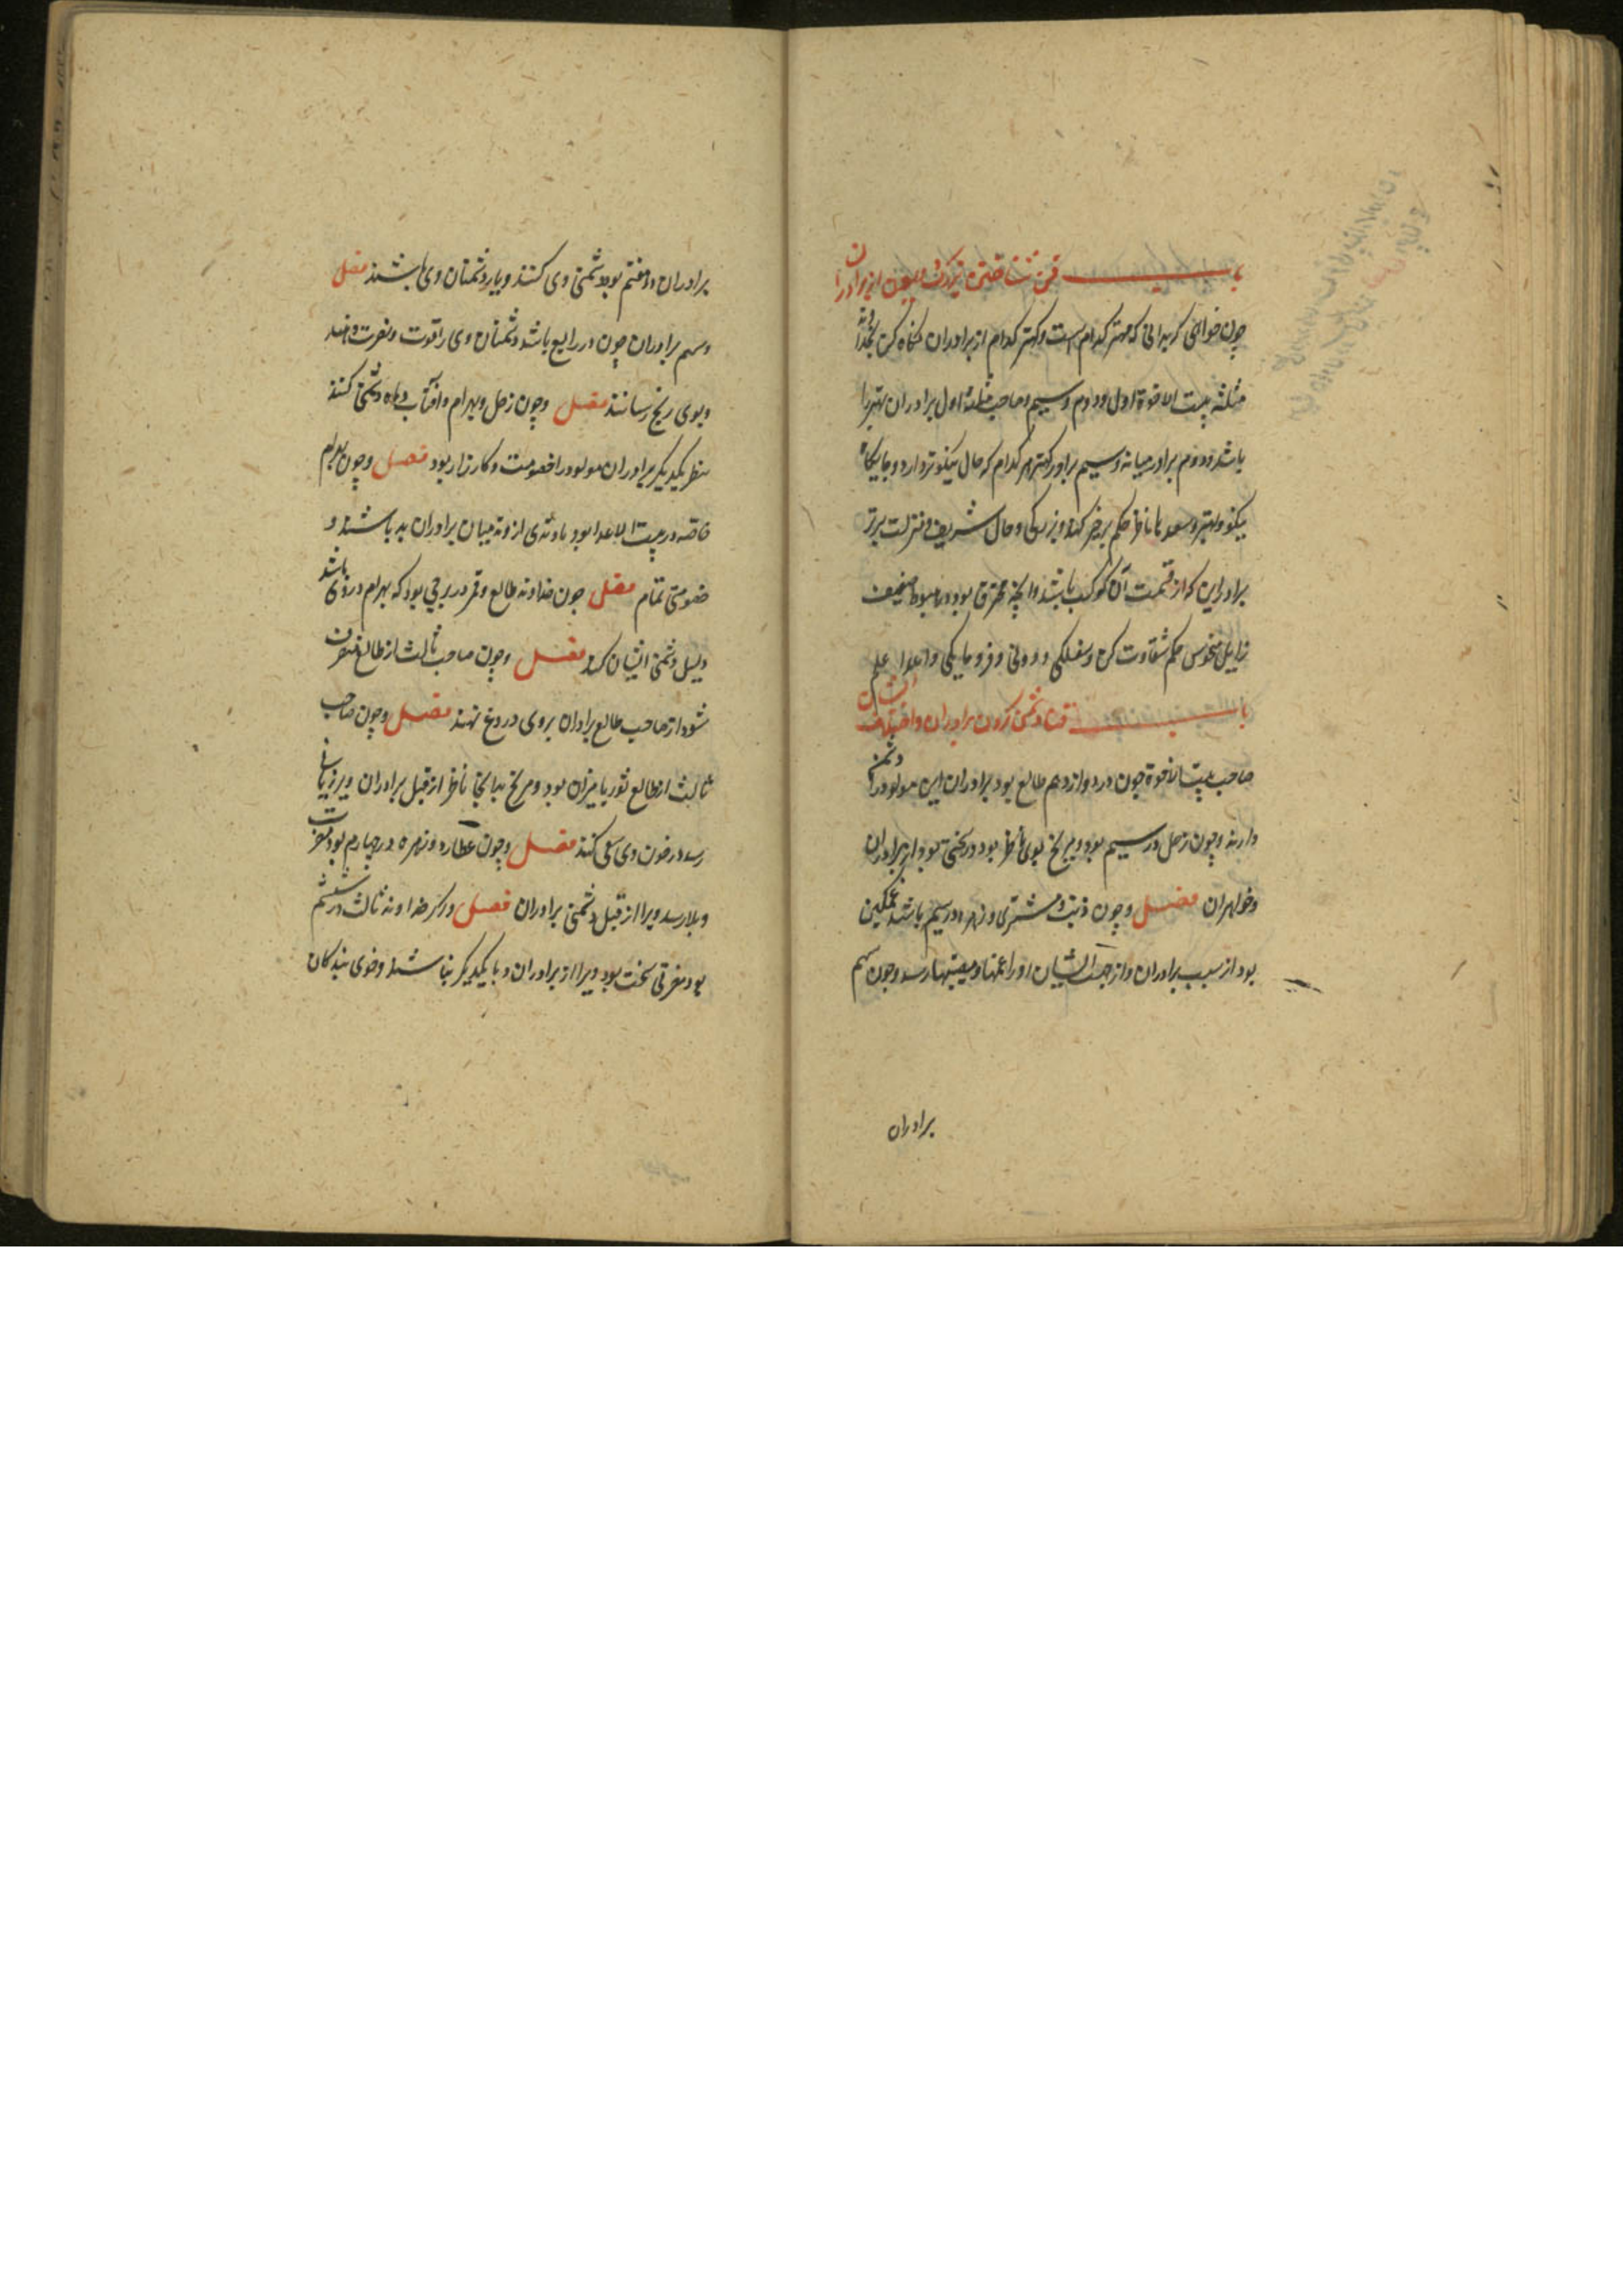 باب فی شناختن بزرگ
چون خواهی که بدانی که مهتر کدام است و کهتر کدام از برادران نگاه کن بخداوند
مثلثه بیت الاخوة اول و دوم و سیم و صاحب مثلثه اول برادران مهتر را
باشد و دوم برادر میانه و سیم برادر کهتر هر کدام که حال نیکوتر دارد و جایگاه
نیکو و بهتر و سعد با ناظر حکم بر خیر کند و بزرگی و حال شریف و منزلت برتر
برادر این که از قسمت آن کوکب باشد وانچه محترق بود و هبوط ضعیف
زایل منحوس حکم شقاوت کن و سفلگی و دونی و فرومایگی والله اعلم
باب دشمنی کردن برادران و اختلاف ایشان
صاحب بیت الاخوة چون در دوازدهم طالع بود برادران این مولود را دشمن
دارند و چون زحل در سیم بود و مریخ بوی ناظر بود در سختی بود از برادران
و خواهران فصل و چون ذنب و مشتری و زهره در سیم باشند غمگین
بود از سبب برادران و از جهت ایشان او را غمها و مصیبتها رسد و چون سهم
برادران
برادران در هفتم بود دشمنی وی کنند و یار دشمنان وی باشند فصل
و سهم برادران چون در رابع باشد دشمنان وی را قوت و نصرت دهند
و بوی رنج رسانند فصل و چون زحل و بهرام و آفتاب و ماه دشمنی کنند
بنظر یکدیگر برادران مولود را خصومت و کارزار بود فصل و چون بهرام
خاصه در بیت الاعدا بود میان برادران بد باشند و
خصومتی تمام فصل چون خداوند طالع و قمر در برجی بود که بهرام در وی باشد
دلیل دشمنی ایشان کند فصل و چون صاحب ثالث از طالع منصرف
شود از صاحب طالع برادران بر وی دروغ نهند فصل و چون صاحب
ثالث از طالع ثور یا میزان بود و مریخ بدانجا ناظر از قبل برادران ویرا زیانها
رسد در خون وی سعی کنند فصل و چون عطارد و زهره در چهارم بود مضرت
و بلا رسد ویرا از قبل دشمنی برادران فصل و اگر خداوند ثالث در ششم
بود مضرتی سخت بود ویرا از برادران و با یکدیگر نباشند و خوی بندگان